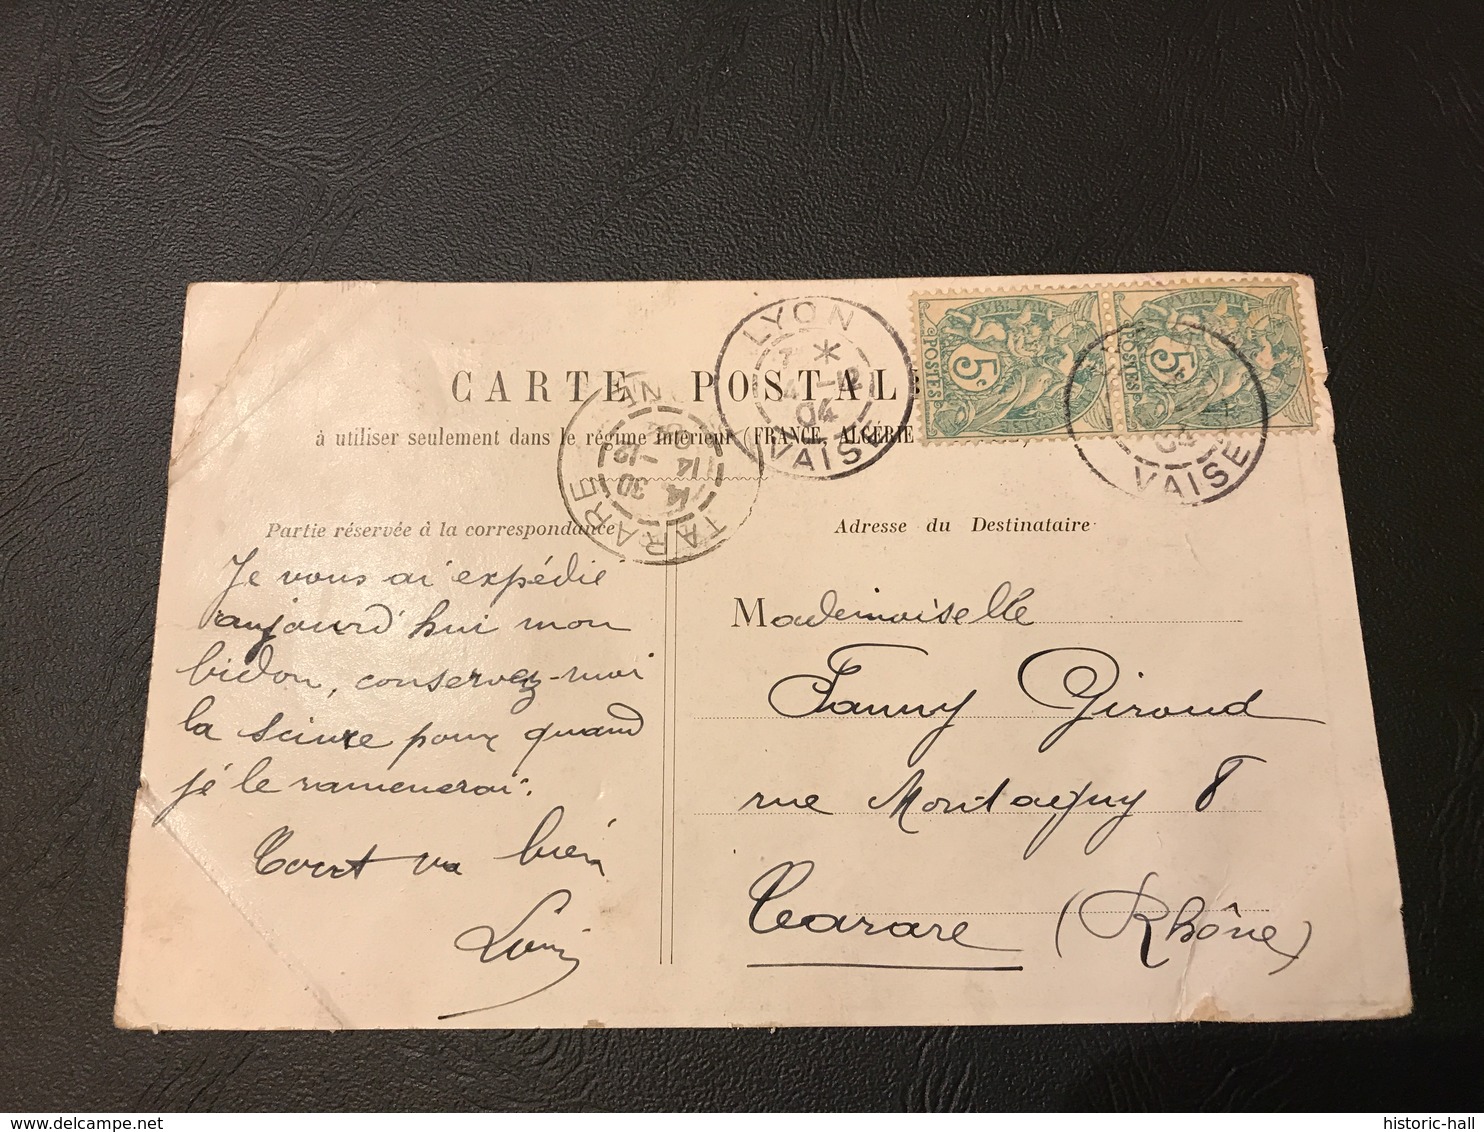 CARTE POSTAL
à utiliser seulement dans le régime intérieur (FRANCE, ALGÉRIE
LYON
4 -12
04
VAISE
POSTES
5c
POSTES
5c
VAISE
TARARE
14 30
14 -12
04
Partie réservée à la correspondance
Je vous ai expédié
aujourd'hui mon
bidon, conservez-moi
la sciure pour quand
je le ramenerai.
Tout va bien
Louis
Adresse du Destinataire
Mademoiselle
Fanny Giroud
rue Montagny 8
Tarare (Rhône)
historic-hall
delcampe.net